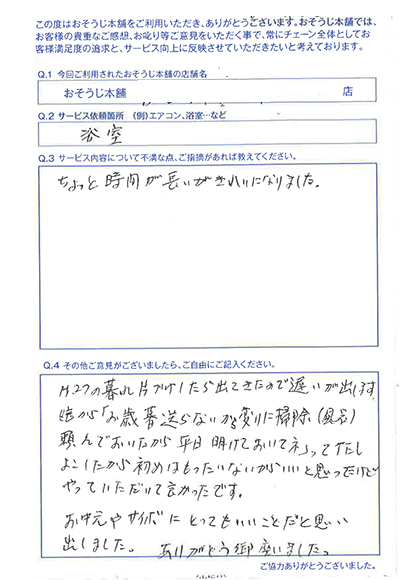 この度はおそうじ本舗をご利用いただき、ありがとうございます。おそうじ本舗では、
お客様の貴重なご感想、お叱り等ご意見をいただく事で、常にチェーン全体としてお
客様満足度の追求と、サービス向上に反映させていただきたいと考えております。
Q.1 今回ご利用されたおそうじ本舗の店舗名
おそうじ本舗 店
Q.2 サービス依頼箇所 (例)エアコン、浴室…など
浴室
Q.3 サービス内容について不満な点、ご指摘があれば教えてください。
ちょっと時間が長いがきれいになりました。
Q.4 その他ご意見がございましたら、ご自由にご記入ください。
H.27の暮れ片づけしたら出てきたので遅いが出します
娘から「お歳暮送らないから変りに掃除(風呂)
頼んでおいたから平日明けておいてネ」って
よこしたから初めはもったいないからいいと思ったけど
やっていただいて良かったです。
お中元やサイボにとってもいいことだと思い
出しました。 ありがとう御座いました。
ご協力ありがとうございました。